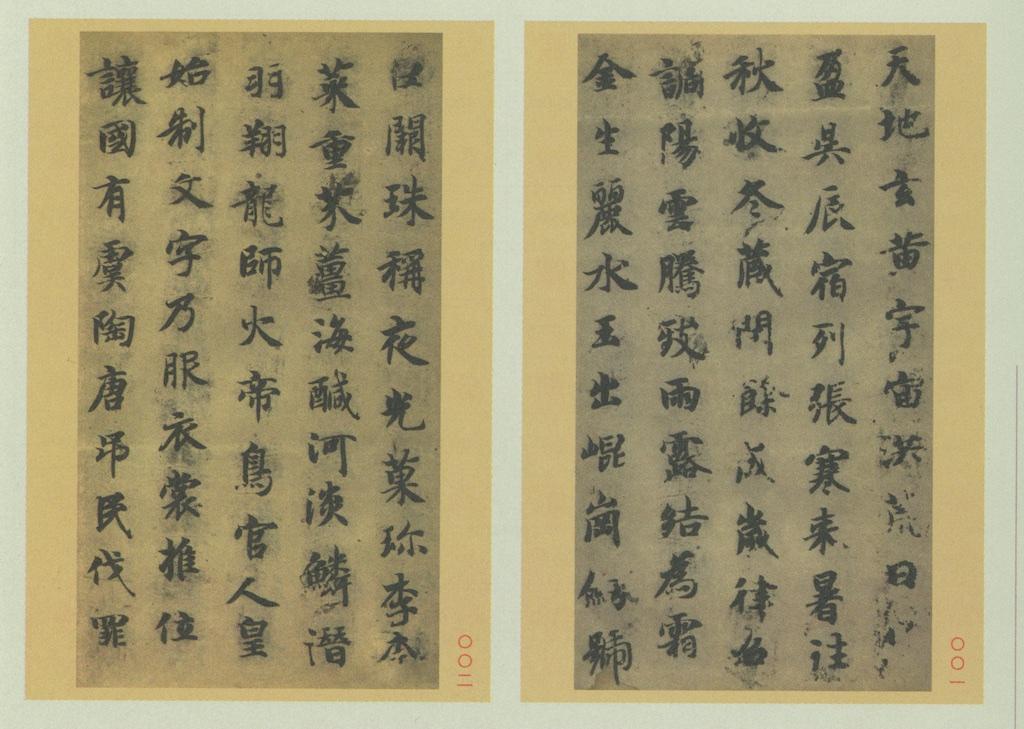 天地玄黄宇宙洪荒日月
盈昃辰宿列張寒来暑往
秋收冬蔵閏餘成歲律召
調陽雲騰致雨露結為霜
金生麗水玉出崐崗劔號
〇〇一
巨闕珠稱夜光菓珎李柰
菜重芥薑海醎河淡鱗潛
羽翔龍師火帝鳥官人皇
始制文字乃服衣裳推位
讓國有虞陶唐弔民伐罪
〇〇二